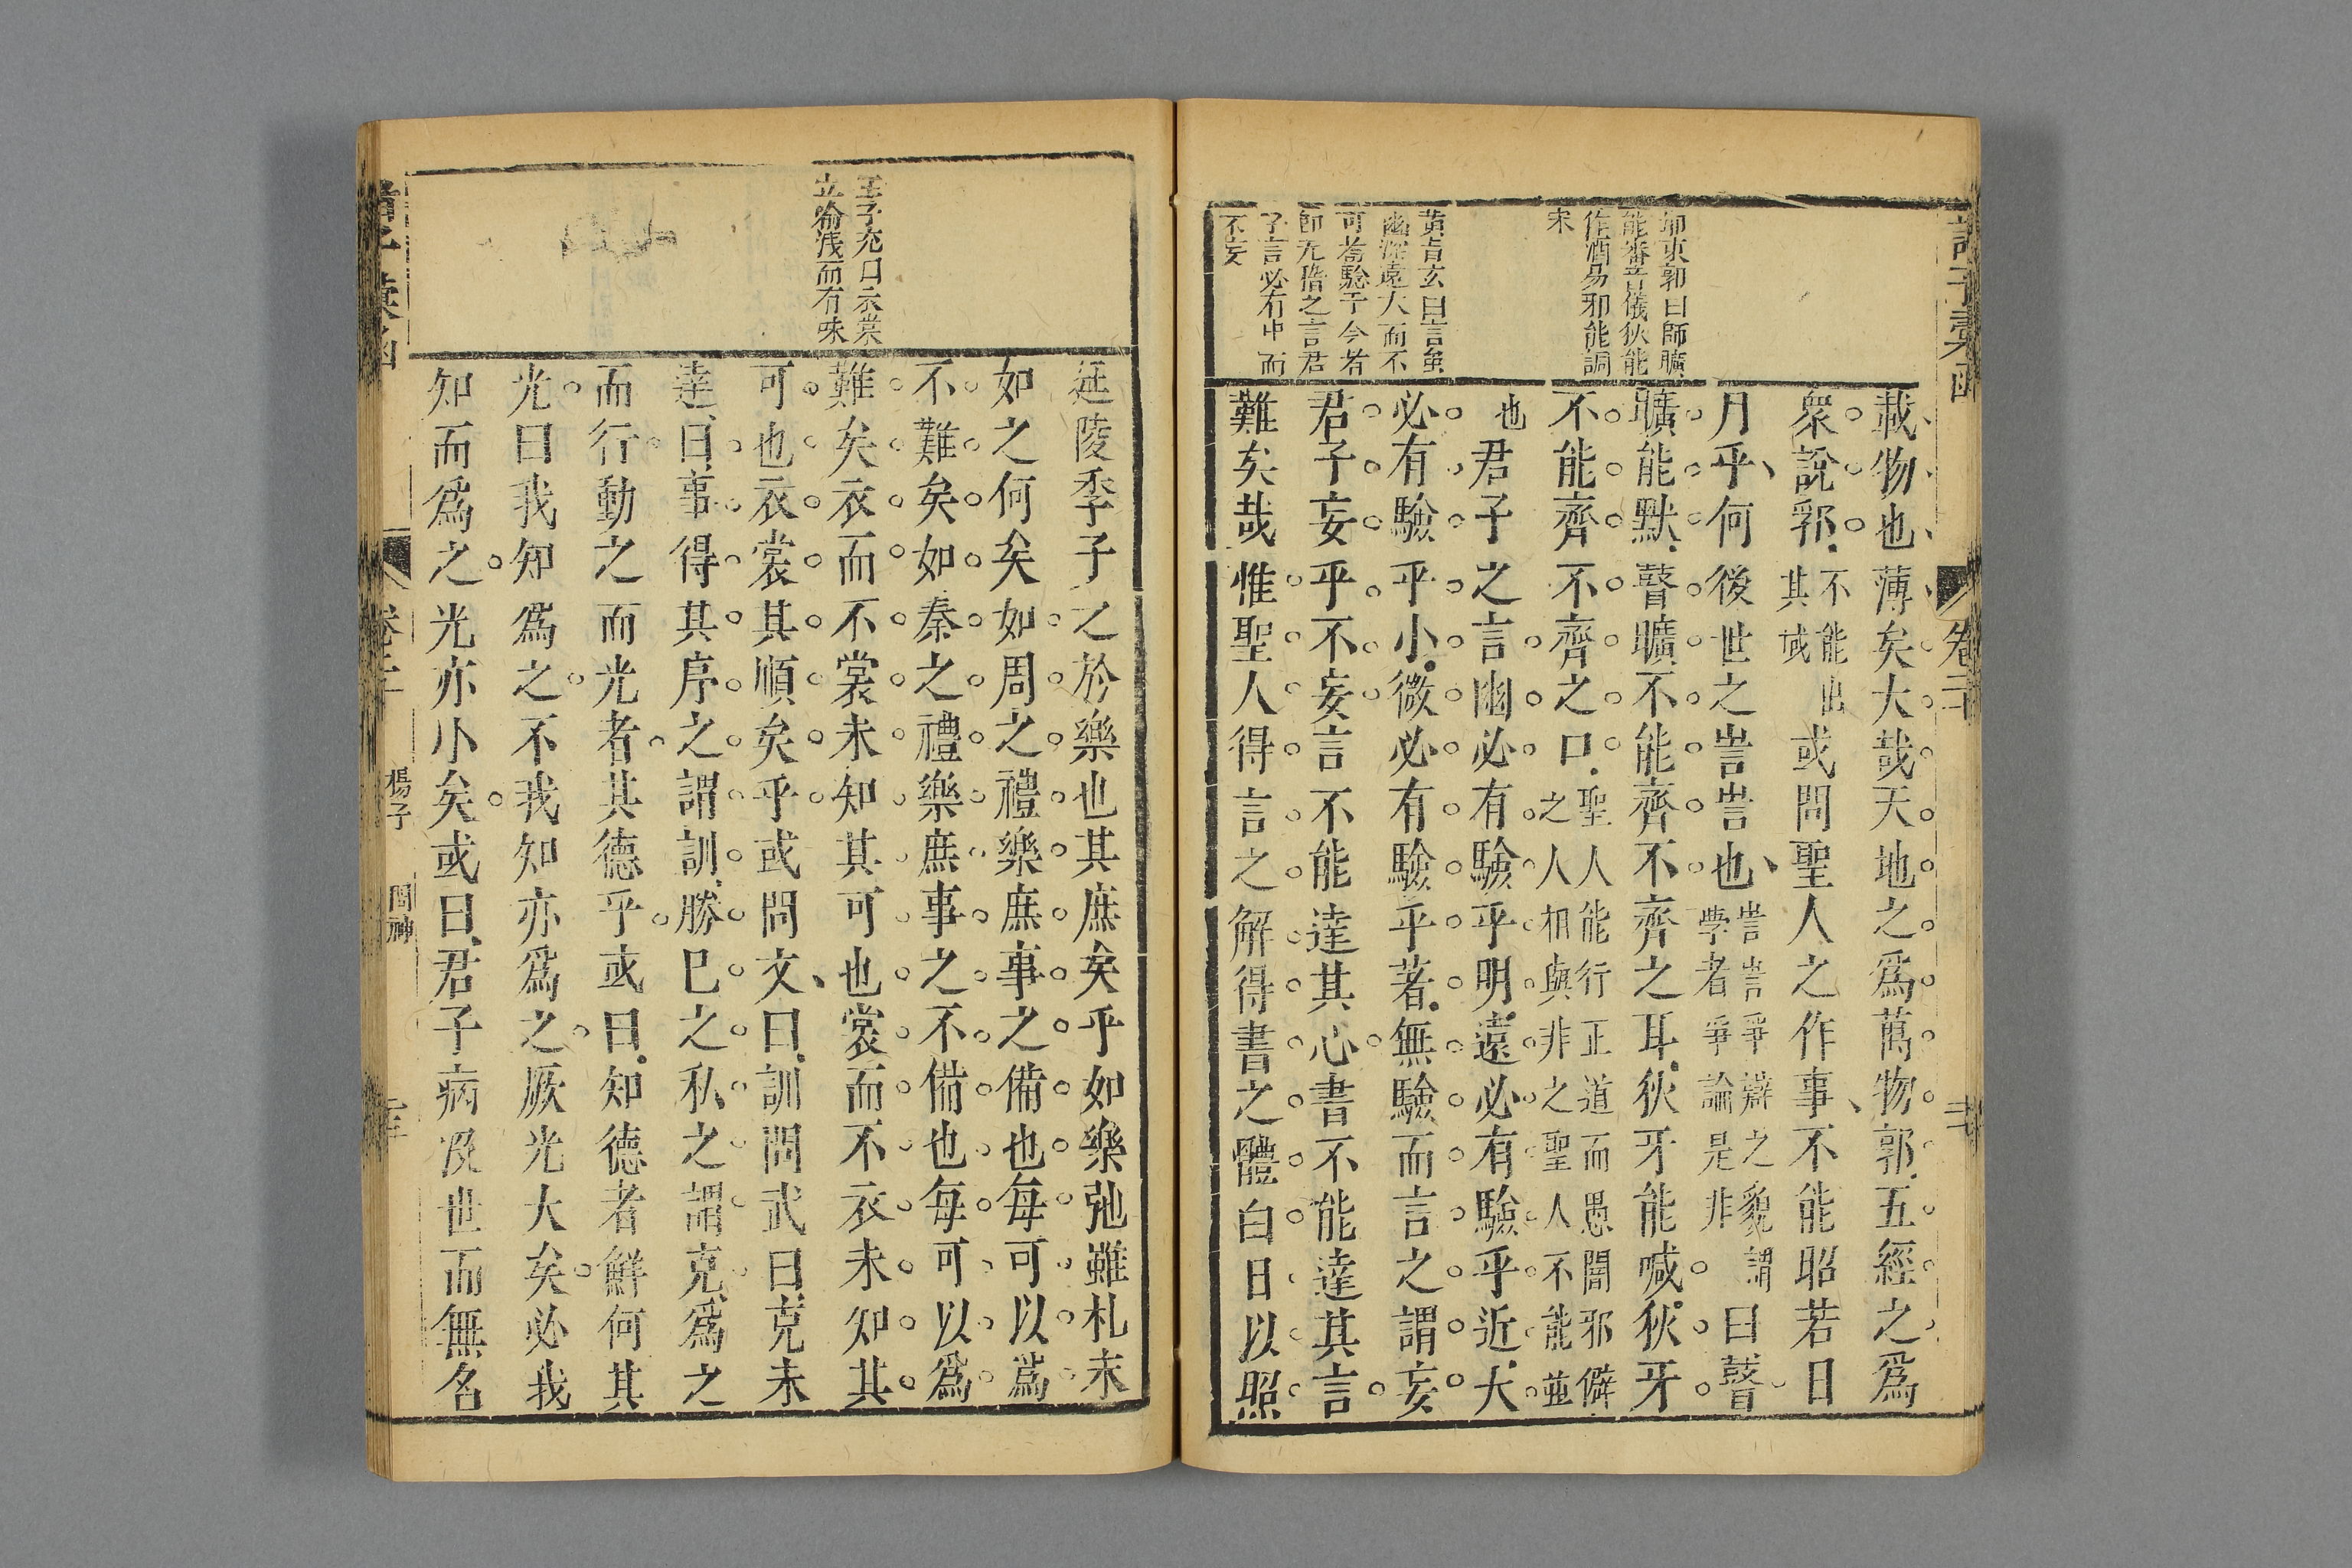 諸子彙函
卷二十
鄔東郭曰師曠
能審音儀狄能
作酒易邪能調
宋
黃肯玄曰言虽
幽深遠大而不
可為驗于今者
卽无稽之言君
子言必有中而
不妄
載物也薄矣大哉天地之為萬物郭五經之為
衆說郛不能出其域或問聖人之作事不能昭若日
月乎何後世之訔訔也訔訔爭辯之貌謂學者爭論是非曰瞽
曠能默瞽曠不能齊不齊之耳狄牙能喊狄牙
不能齊不齊之口聖人能行正道而愚闇邪僻之人相與非之聖人不能並
也君子之言幽必有驗乎明遠必有驗乎近大
必有驗乎小微必有驗乎著無驗而言之謂妄
君子妄乎不妄言不能達其心書不能達其言
難矣哉惟聖人得言之解得書之體白日以照
王子充曰示裳
立喻淺而有味
延陵季子之於樂也其庶矣乎如樂弛雖札末
如之何矣如周之禮樂庶事之備也每可以為
不難矣如秦之禮樂庶事之不備也每可以為
難矣衣而不裳未知其可也裳而不衣未知其
可也衣裳其順矣乎或問文曰訓問武曰克未
達曰事得其序之謂訓勝已之私之謂克為之
而行動之而光者其德乎或曰知德者鮮何其
光曰我知為之不我知亦為之厥光大矣必我
知而為之光亦小矣或曰君子病沒世而無名
卷二十
楊子
問神